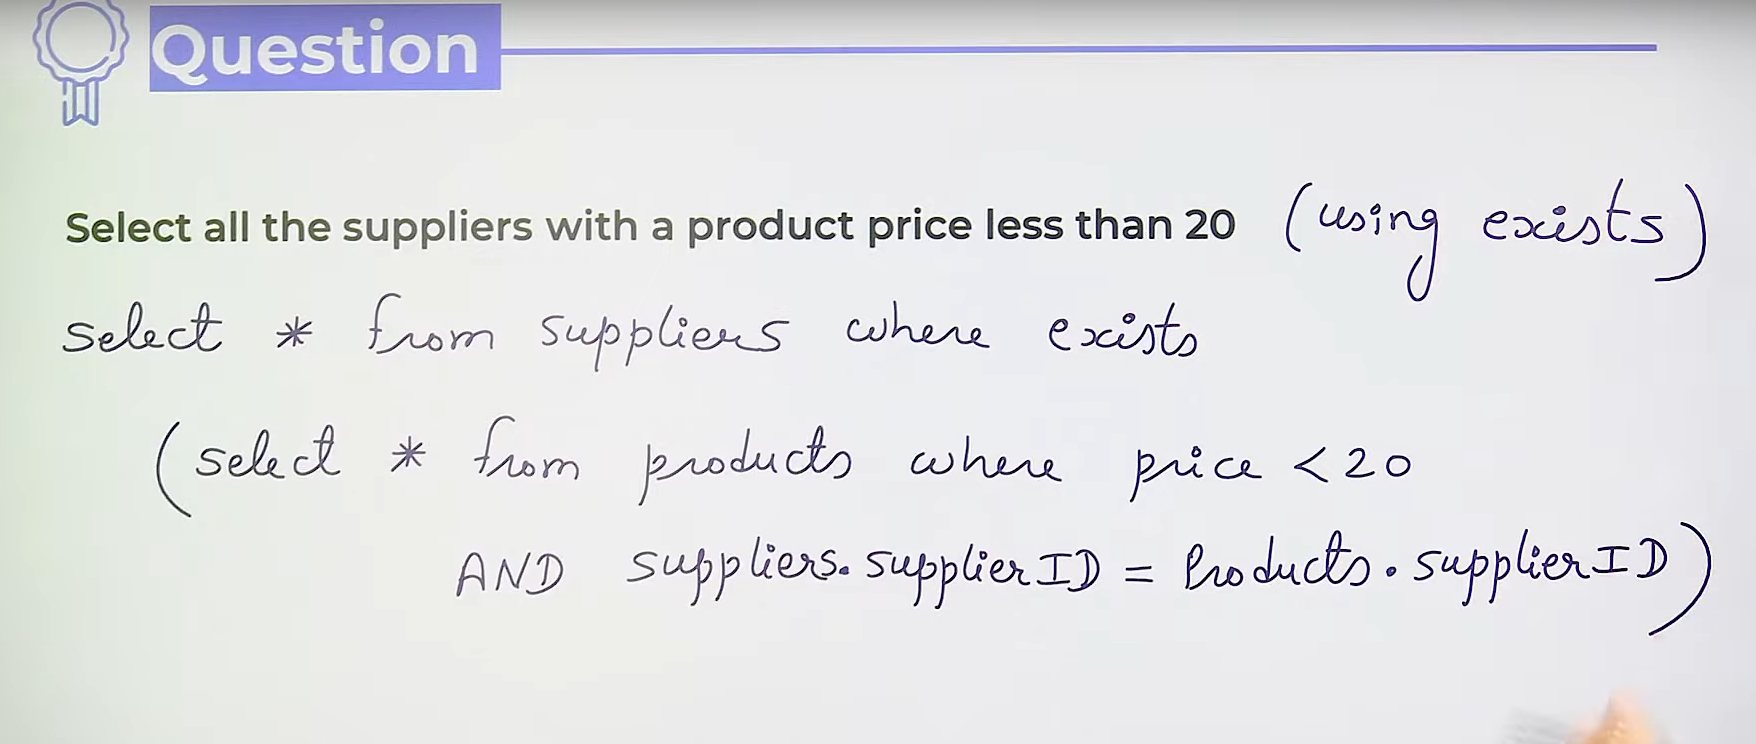 Question
Select all the suppliers with a product price less than 20 (using exists)
select * from suppliers where exists
(select * from products where price <20
AND suppliers.supplierID = Products.supplierID)